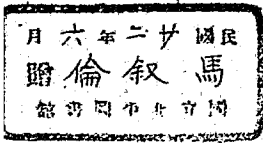 民國廿二年六月
馬叙倫贈
國立北平圖書館